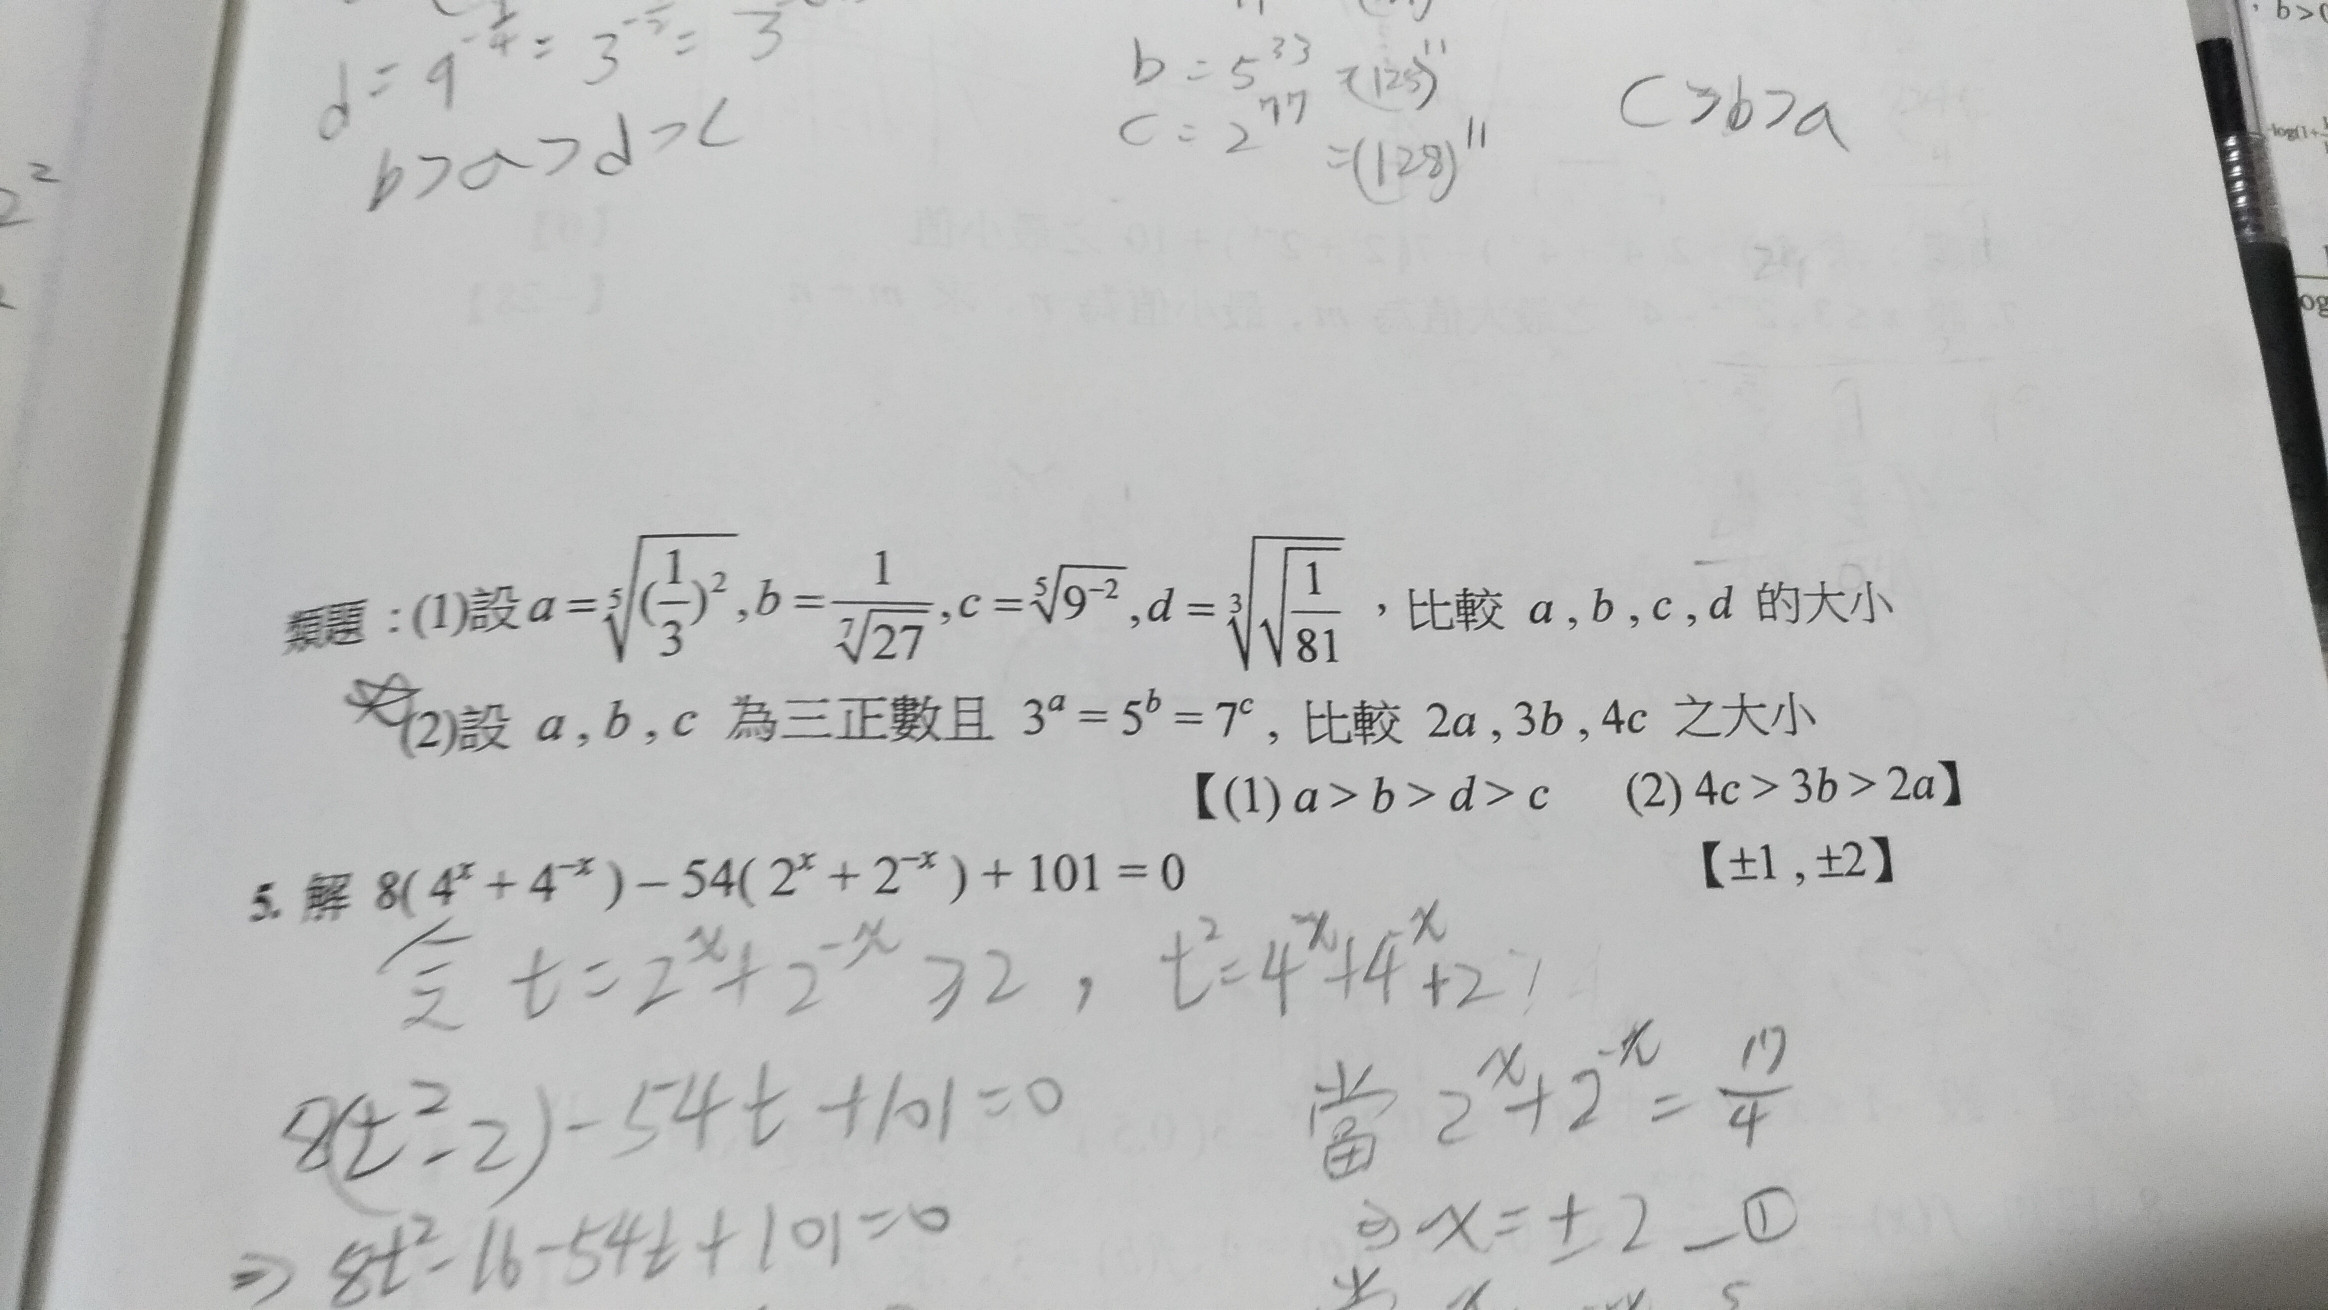 d = 9^{-\frac{1}{4}} = 3^{-\frac{1}{2}} =
b>a>d>c
b = 5^{33} = (125)^{11}
c = 2^{77} = (128)^{11}
c>b>a
類題:(1)設 a = \sqrt[5]{(\frac{1}{3})^2}, b = \frac{1}{\sqrt[7]{27}}, c = \sqrt[5]{9^{-2}}, d = \sqrt[3]{\sqrt{\frac{1}{81}}},比較 a , b , c , d 的大小
(2)設 a , b , c 為三正數且 3^a = 5^b = 7^c , 比較 2a , 3b , 4c 之大小
【(1) a > b > d > c (2) 4c > 3b > 2a】
5. 解 8( 4^x + 4^{-x} ) − 54( 2^x + 2^{-x} ) + 101 = 0 【±1 , ±2】
令 t = 2^x + 2^{-x} ≥ 2 , t^2 = 4^x + 4^{-x} + 2
8(t^2 - 2) - 54t + 101 = 0
⇒ 8t^2 - 16 - 54t + 101 = 0
當 2^x + 2^{-x} = \frac{17}{4}
⇒ x = ± 2 — ①
b>